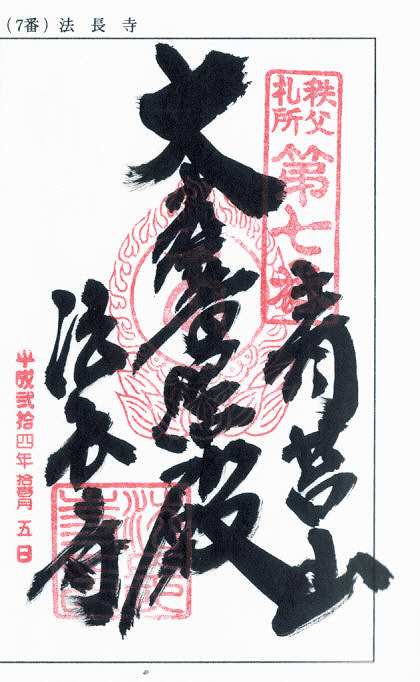 (7番) 法長寺
秩父
札所
第七番
青苔山
大
殿
法長寺
平成弐拾四年拾壹月五日